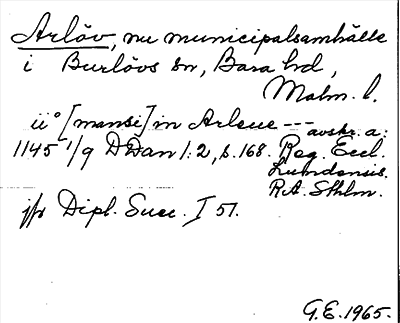 Arlöv, nu municipalsamhälle
i Burlövs sn, Bara hd,
Malm. l.
ii° [mansi] in Arleue --- avskr. a:
1145 1/9 DDan 1:2, s. 168. Reg. Eccl.
Lundensis.
R.A. Sthlm.
jfr Dipl. Suec. I 51.
G.E. 1965.